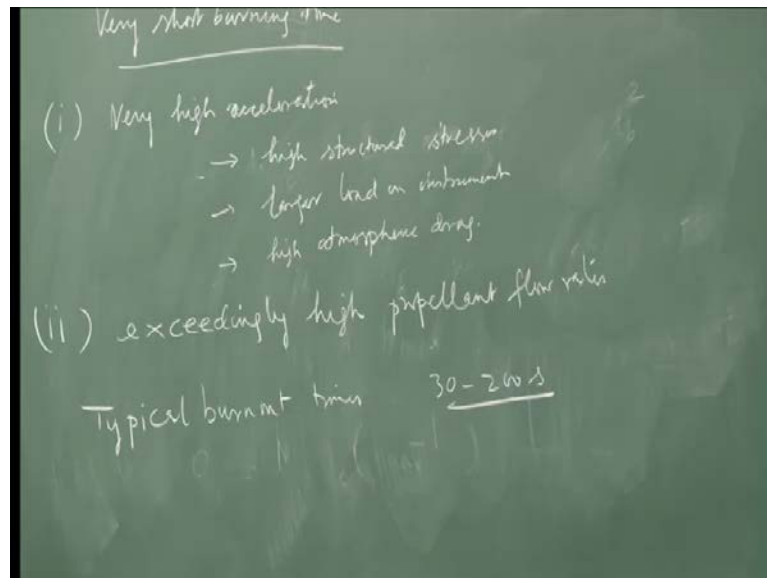 Very short burning time
(i) Very high acceleration
→ high structural stresses.
→ larger load on instrument
→ high atmospheric drag.
(ii) exceedingly high propellant flow rates
Typical burnout times 30-200 s